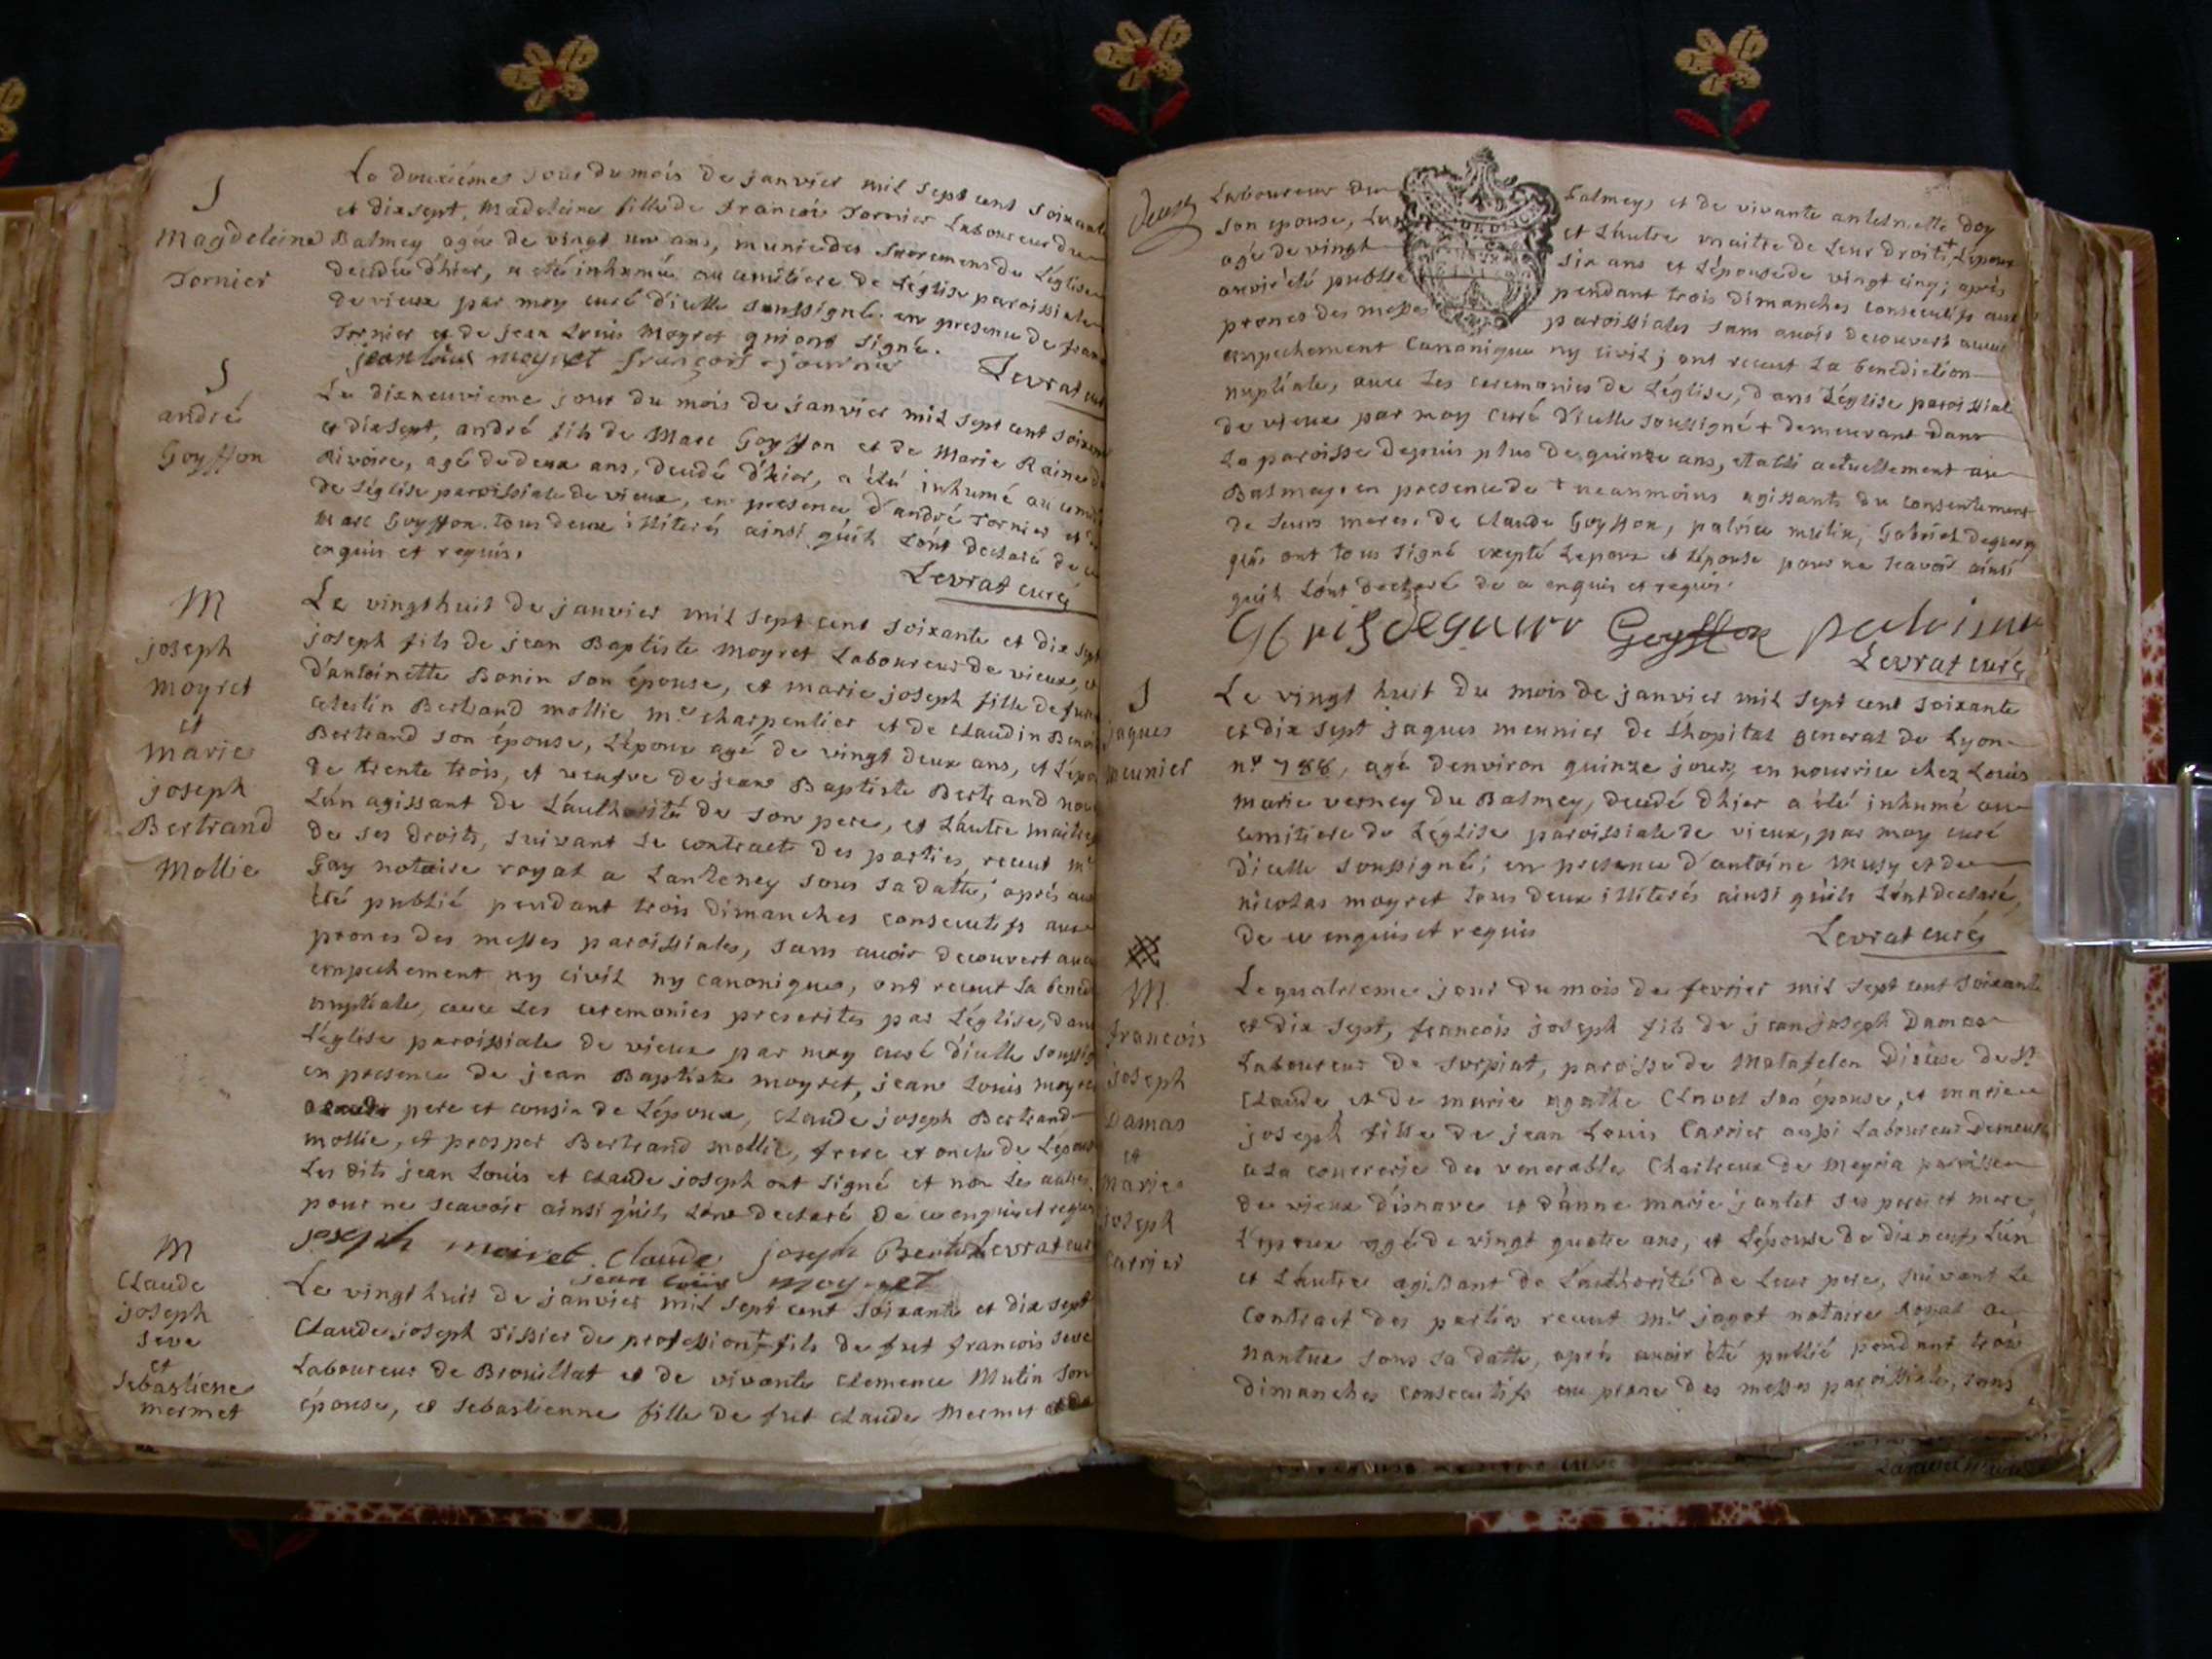 S
Magdeleine
Tornier
Le douxiéme jour du mois de janvier mil sept cent soixante
et dixsept, Madeleine fille de francois Tornier Laboureur du
Balmey agée de vingt un ans, munie des sacremens de L'église
decedée d'hier, a eté inhumée au cemitiere de L'église paroissiale
de vieux par moy curé d'icelle soussigné. en presence de fran
Tornier et de jean Louis Moyret qui ont signé.
jean louis moyret françois tournié
Levrat curé
S
andré
Goyffon
Le dixneuvieme jour du mois de janvier mil sept cent soixante
et dixsept, andré fils de Marc Goyffon et de Marie Raine de
Rivoire, agé de deux ans, decedé d'hier, a été inhumé au cemit
de L'église paroissiale de vieux, en presence d'andré Tornier et de
Marc Goyffon tous deux illiterés ainsi qu'ils L'ont declaré de ce
enquis et requis.
Levrat curé
M
joseph
moyret
et
Marie
joseph
Bertrand
Mollie
Le vingt huit de janvier mil sept cent soixante et dix sept
joseph fils de jean Baptiste moyret Laboureur de vieux, et
d'antoinette Bonin son épouse, et marie joseph fille de furent
celestin Bertrand mollie me charpentier et de claudin Benoi
Bertrand son épouse, L'époux agé de vingt deux ans, et L'épo
de trente trois, et veufve de jean Baptiste Bertrand
L'un agissant de L'authorité de son pere, et L'autre maitre
de ses droits, suivant Le contract des parties, receut me
Gay notaire royal a Lanteney sous sa datte; aprés avo
été publié pendant trois dimanches consecutifs aux
prones des messes paroissiales, sans avoir decouvert aucu
empechement ny civil ny canonique, ont receut La bened
nuptiale, avec Les ceremonies prescrites par L'église, dans
L'église paroissiale de vieux par moy curé d'icelle soussig
en presence de jean Baptiste moyret, jean Louis moyret
pere et cousin de L'époux, claude joseph Bertrand
mollie, et prosper Bertrand mollie, frere et oncle de L'epous
Les dits jean Louis et claude joseph ont signé et non Les autres
pour ne scavoir ainsi qu'ils L'ont declaré de ce enquis et requis
joseph moiret. Claude joseph Bertr Levrat curé
jean louis moyret
M
Claude
joseph
seve
et
sebastiene
mermet
Le vingt huit de janvier mil sept cent soixante et dix sept
Claude joseph Tissier de profession + fils de fut francois seve
Laboureur de Brouillat et de vivante clemence Mutin son
épouse, et sebastienne fille de fut claude Mermet
deux
Laboureur du Balmey, et de vivante antoinette Doy
son epouse, L'un et L'autre maitre de Leur droits + L'époux
agé de vingt six ans et L'épouse de vingt cinq; aprés
avoir été publié pendant trois dimanches consecutifs aux
prones des messes paroissiales sans avoir decouvert aucun
empechement canonique ny civil; ont receut La benediction
nuptiale, avec Les ceremonies de L'église, dans L'église paroissiale
de vieux par moy curé d'icelle soussigné + demeurant dans
La paroisse depuis plus de quinze ans, etabli actuellement au
Balmey. en presence de + neanmoins agissants du consentement
de Leurs meres. de claude Goyffon, patrice mutin, Gabriel deguerry
qui ont tous signé excepté L'epoux et L'épouse pour ne scavoir ainsi
quils L'ont declaré de ce enquis et requis.
Goyffon
Levrat curé
S
jaques
meunier
Le vingt huit du mois de janvier mil sept cent soixante
et dix sept jaques meunier de L'hopital general de Lyon
n° 788, agé d'environ quinze jours en nourrice chez Louis
marie verney du Balmey, decedé d'hier a été inhumé au
cemitiere de L'église paroissiale de vieux, par moy curé
d'icelle soussigné; en presence d'antoine musy et de
nicolas moyret tous deux illiterés ainsi qu'ils L'ont declaré,
de ce enquis et requis
Levrat curé
M
francois
joseph
Damas
et
marie
joseph
Carrier
Le quatrieme jour du mois de fevrier mil sept cent soixante
et dix sept, francois joseph fils de jean joseph Damas
Laboureur de sorpiat, paroisse de Matafelon Diocese de St
Claude, et de marie agathe Clavel son épouse, et marie
joseph fille de jean Louis Carrier Laboureur demeur
a La courrerie des venerables Chartreux de Meyria paroisse
de vieux d'isnave et d'anne marie jantet ses pere et mere,
L'epoux agé de vingt quatre ans, et L'épouse de dixneuf, L'un
et L'autre agissant de L'authorité de Leur pere, suivant Le
contract des parties receut me jagot notaire royal a
nantua sous sa datte, aprés avoir été publié pendant trois
dimanches consecutifs au prone des messes paroissiales, sans